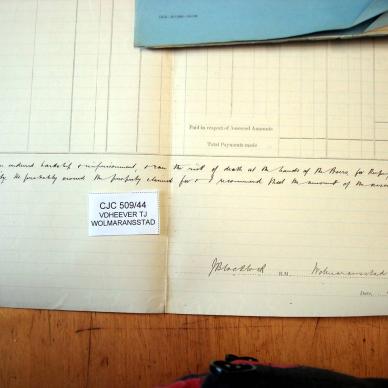 Paid in respect of Assessed Amounts
Total Payments made
endured hardship & imprisonment, & ran the risk of death at the hands of the Boers for
He probably owned the property claimed for & I recommend that the amount of the
CJC 509/44
VDHEEVER TJ
WOLMARANSSTAD
R.M. Wolmaransstad
Date